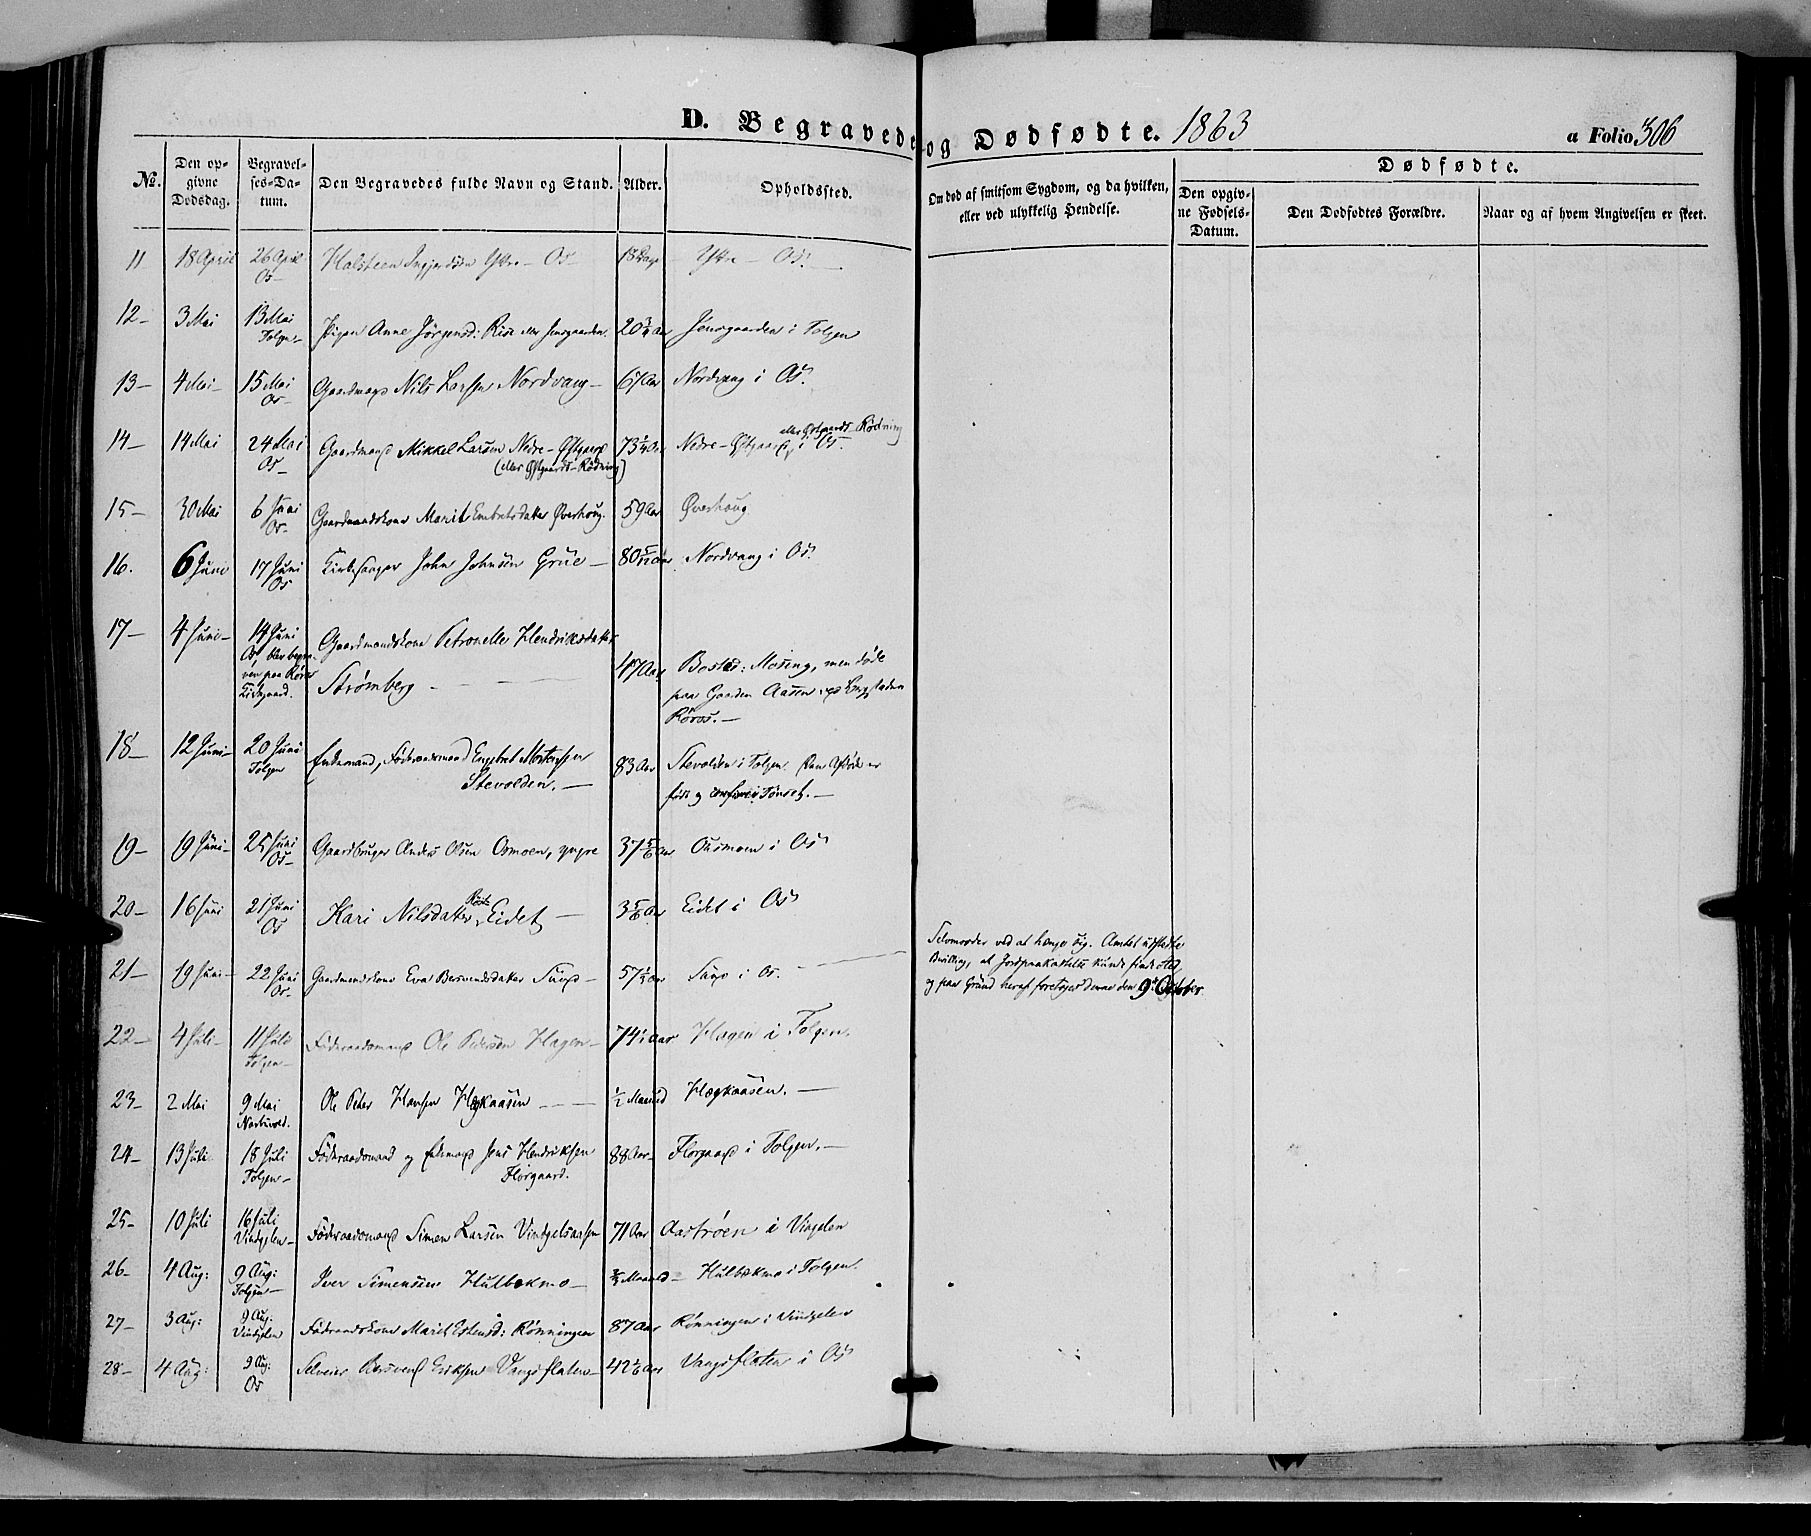 D. Begravede og Dødfødte. 1863
a Folio 306
No.
Den opgivne Dødsdag.
Begravelses-Datum.
Den Begravedes fulde Navn og Stand.
Alder.
Opholdssted.
Om død af smitsom Sygdom, og da hvilken, eller ved ulykkelig Hendelse.
Dødfødte.
Den opgivne Fødsels-Datum.
Den Dødfødtes Forældre.
Naar og af hvem Angivelsen er skeet.
11 18 April 26 April Os Halsteen Ingjerdsøn Ytre-Os 18 Dage Ytre-Os.
12 3 Mai 13 Mai Tolgen Pigen Anne Jörgensd: Rise eller Jensgaarden 20 Aar Jensgaarden i Tolgen
13 4 Mai 15 Mai Os Gaardmand Nils Larsen Nordvang 67 Aar Nordvang i Os.
14 14 Mai 24 Mai Os Gaardmand Mikkel Larsen Nedre-Østgaard (eller Østgaards-Rødning) 73 1/4 Aar Nedre-Østgaard eller Østgaards-Rödning i Os.
15 30 Mai 6 Juni Os Gaardmandskone Marit Embretsdatter Øverhoug. 59 Aar Øverhoug
16. 6 Juni 17 Juni Os Kirkesanger John Johnsen Grüe 80 5/12 Aar Nordvang i Os.
17 4 Juni 14 Juni Os, blev begraven paa Røros Kirkegaard. Gaardmandskone Petronelle Hendriksdatter Strømberg 47 Aar Bosted: Mosing, men döde paa Gaarden Aasen ved Bergstaden Röros.
18 12 Juni 20 Juni Tolgen Enkemand, Föderaadsmand Engebret Mortensen Stevolden. 83 Aar Stevolden i Tolgen. Den Afdöde er födt og confirm. i Tönset.
19 19 Juni 25 Juni Os Gaardbruger Anders Olsen Osmoen, yngre 37 5/6 Aar Ousmoen i Os
20 16 Juni 21 Juni Os Kari Nilsdatter Røste Eidet 3 5/6 Aar Eidet i Os
21 19 Juni 22 Juni Os Gaardmandskone Eva Bersvendsdatter Sünd 57 1/2 Aar Sund i Os. Selvmorder ved at hænge sig. Amtet udstedte Bevilling, at Jordpaakastelse kunde finde Sted, og paa Grund heraf foretoges denne den 9de October
22 4 Juli 11 Juli Tolgen Föderaadsmand Ole Pedersen Hagen 74 1/2 Aar Hagen i Tolgen.
23 2 Mai 9 Mai Narbuvold. Ole Peter Hansen Hegkaasen 1/2 Maaned Hægkaasen.
24 13 Juli 18 Juli Tolgen Föderaadsmand og Enkemand Jens Hendriksen Florgaard. 88 Aar Florgaard i Tolgen.
25 10 Juli 16 Juli Vindgelen Föderaadsmand Simen Larsen Vindgelsaasen 71 Aar Aaströen i Vingelen
26 4 Aug: 9 Aug: Tolgen Iver Simensen Hulbekmo Maaned Hulbekmo i Tolgen.
27 3 Aug: 9 Aug: Vindgelen Föderaadskone Marit Estensd: Rønningen 87 Aar Rönningen i Vindgelen
28 4 Aug: 9 Aug: Os Selveier Bersvend Eriksen Vangsflaten 42 1/6 Aar Vangsflaten i Os